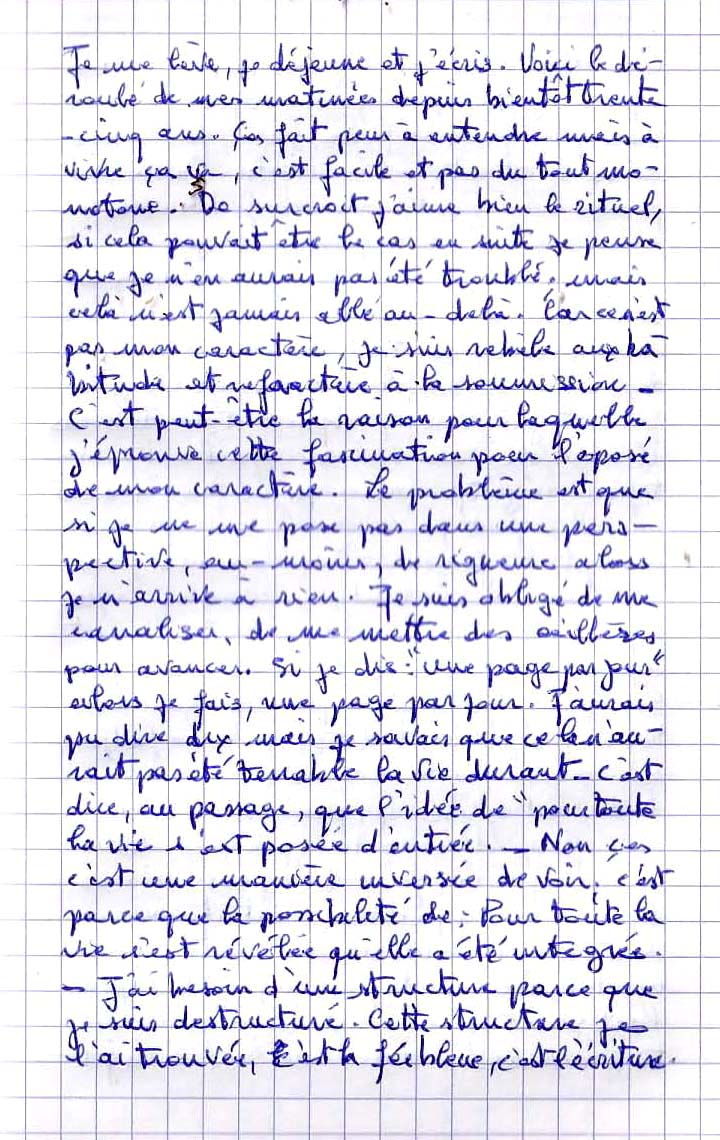 Je me lève, je déjeune et j'écris. Voici le dé-
roulé de mes matinées depuis bientôt trente
-cinq ans. Ça fait peur à entendre mais à
vivre ça va, c'est facile et pas du tout mo-
notone. De surcroit j'aime bien le rituel,
si cela pouvait être le cas en suite je pense
que je n'en aurais pas été troublé, mais
celà n'est jamais allé au-delà. Car ce n'est
pas mon caractère, je suis rebèle aux ha
bitude et refractère à la soumission -
C'est peut-être la raison pour laquelle
j'éprouve cette fascination pour l'oposé
de mon caractère. Le problème est que
si je ne me pose pas dans une pers-
pective, au-moins, de rigueure alors
je n'arrive à rien. Je suis obligé de me
canaliser, de me mettre des œillères
pour avancer. Si je dis: "une page par jour"
alors je fais, une page par jour. J'aurais
pu dire dix mais je savais que cela n'au-
rait pas été tenable la vie durant - c'est
dire, au passage, que l'idée de "pour toute
la vie s'est posée d'entrée. - Non ças
c'est une manière inversée de voir, c'est
parce que la possibileté de: Pour toute la
vie s'est révélée qu'elle a été integrés.
- J'ai besoin d'une structure parce que
je suis destructuré. Cette structure je
l'ai trouvée, c'est la fée bleue, c'est l'écriture.